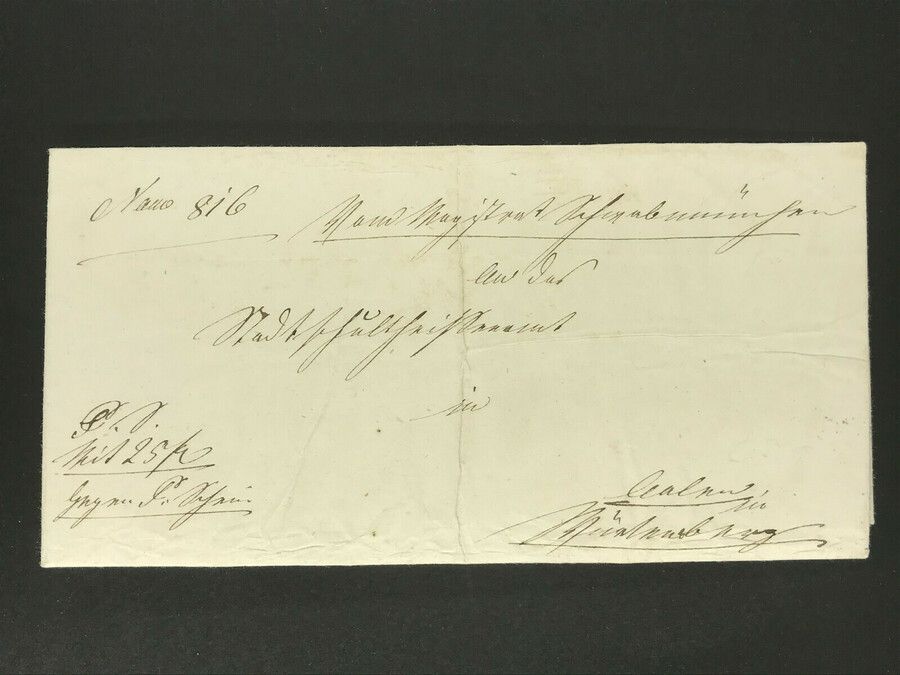 Num 816
Vom Magistrat Schwabmünchen
An das
Stadtschultheissenamt
in
P. S.
Mit 25 fl
gegen P. Schein.
Aalen
in
Würtemberg